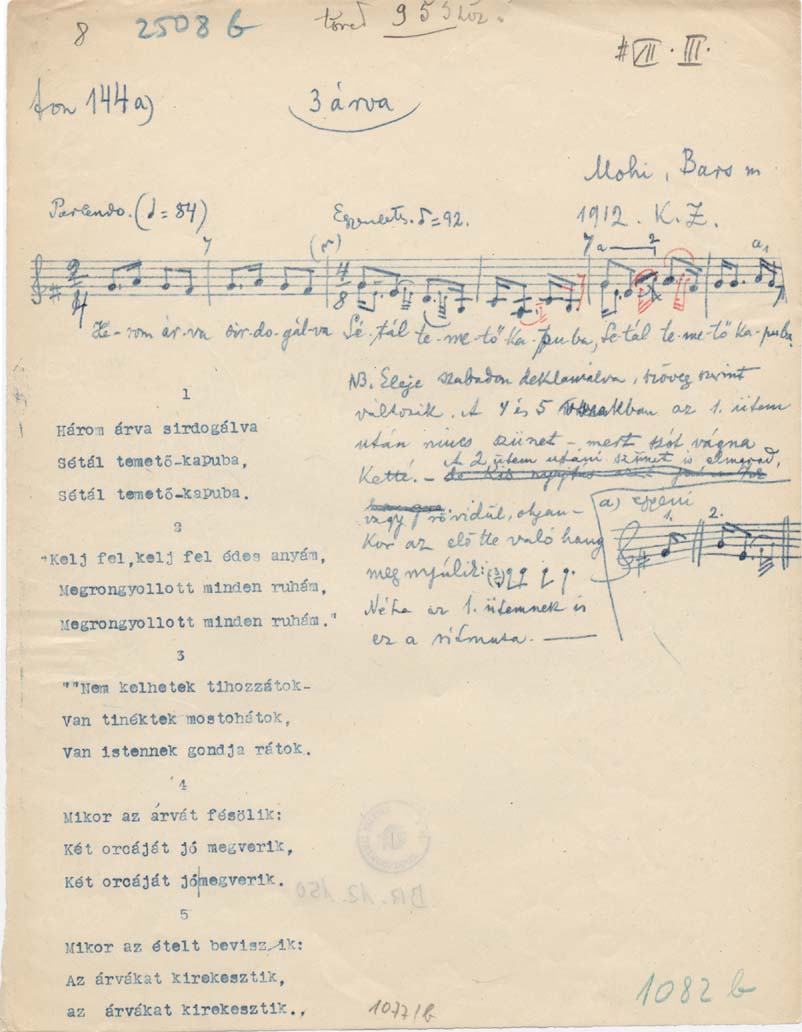 8
2508 b
955
# VII · III ·
fon 144a)
3 árva
Mohi, Bars m
1912. K. Z.
Parlando. (♩= 84)
Egyenletes ♩= 92.
7
7 a 2
a 1
2/4
4/8
Há-rom ár-va sir-do-gál-va Sé-tál te-me-tő ka-pu-ba, Sé-tál te-me-tő ka-pu-ba.
NB. Eleje szabadon deklamálva, szöveg szerint
változik. A 4 és 5 versszakban az 1. ütem
után nincs szünet – mert szót vágna
Ketté. – A 2 ütem utáni szünet is elmarad,
vagy rövidül, olyan-
Kor az előtte való hang
meg nyúlik:
Néha az 1. ütemnek is
ez a ritmusa. —
a)
1. 2.
1
Három árva sirdogálva
Sétál temető-kapuba,
Sétál temető-kapuba.
2
"Kelj fel,kelj fel édes anyám,
Megrongyollott minden ruhám,
Megrongyollott minden ruhám."
3
""Nem kelhetek tihozzátok-
Van tinéktek mostohátok,
Van istennek gondja rátok.
4
Mikor az árvát fésölik:
Két orcáját jó megverik,
Két orcáját jó|megverik.
5
Mikor az ételt beviszik:
Az árvákat kirekesztik,
az árvákat kirekesztik.,
BR. 12.150
1077/b
1082 b